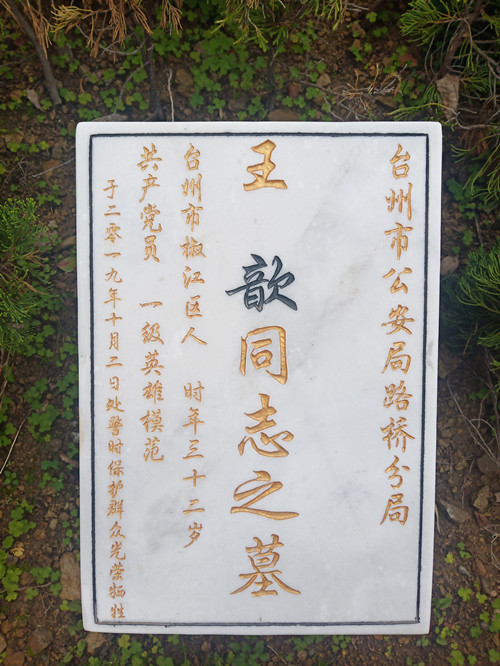 台州市公安局路桥分局
王 歆同志之墓
台州市椒江区人 时年三十二岁
共产党员 一级英雄模范
于二零一九年十月二日处警时保护群众光荣牺牲